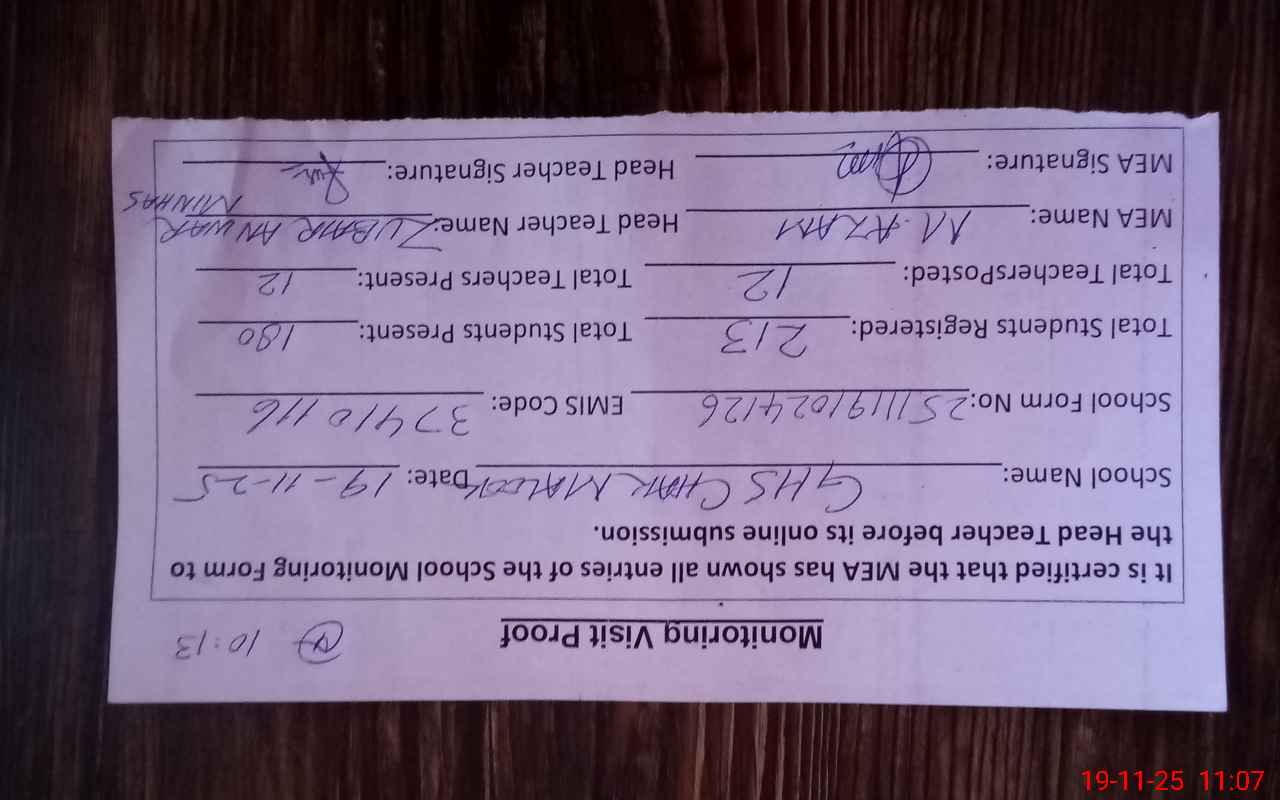 Monitoring Visit Proof
10:13
It is certified that the MEA has shown all entries of the School Monitoring Form to
the Head Teacher before its online submission.
School Name: GHS CHAK MALOOK Date: 19-11-25
School Form No: 2511191024126 EMIS Code: 37410116
Total Students Registered: 213 Total Students Present: 180
Total TeachersPosted: 12 Total Teachers Present: 12
MEA Name: M. AZAM Head Teacher Name: ZUBAIR ANWAR
MINHAS
MEA Signature: Head Teacher Signature:
19-11-25 11:07